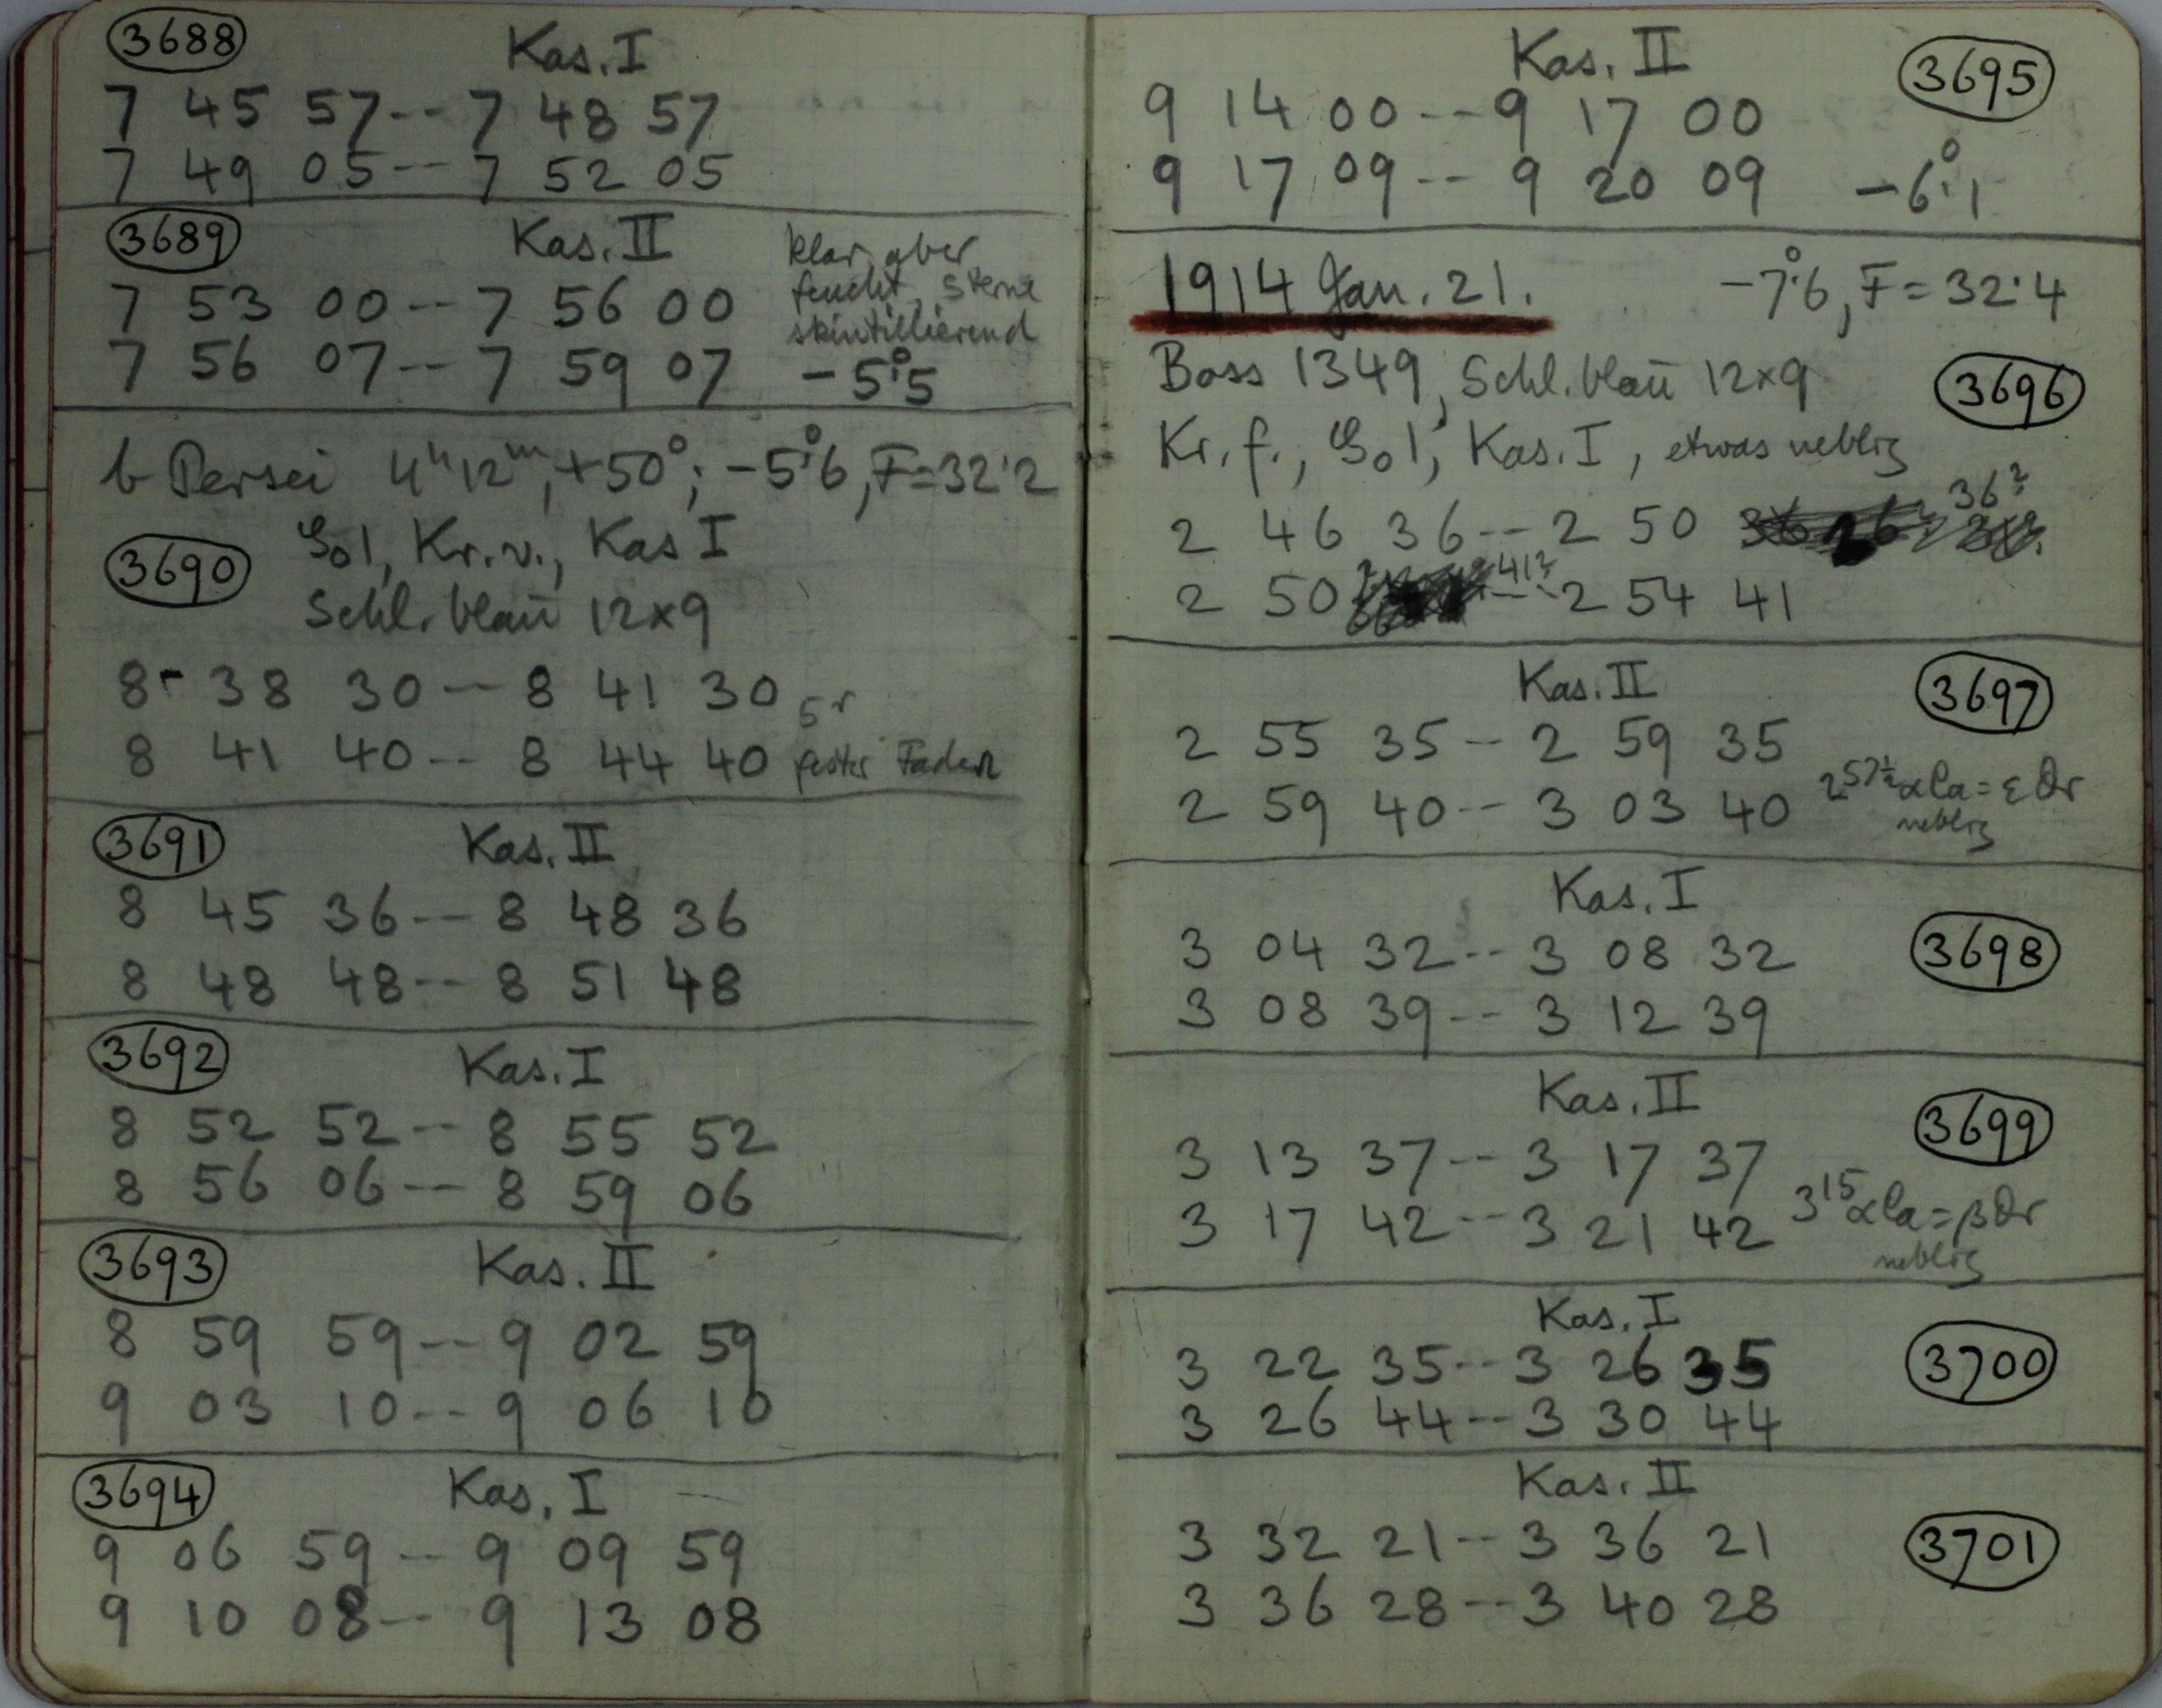 3688 Kas. I
7 45 57 -- 7 48 57
7 49 05 -- 7 52 05
3689 Kas. II
klar aber
feucht, Sterne
skintillierend
7 53 00 -- 7 56 00
7 56 07 -- 7 59 07 -5°.5
b Persei 4h 12m, +50°; -5°.6, F=32.2
3690 1, Kr. v., Kas I
Schl. blau 12x9
8 38 30 -- 8 41 30
8 41 40 -- 8 44 40 fester Faden
3691 Kas. II
8 45 36 -- 8 48 36
8 48 48 -- 8 51 48
3692 Kas. I
8 52 52 -- 8 55 52
8 56 06 -- 8 59 06
3693 Kas. II
8 59 59 -- 9 02 59
9 03 10 -- 9 06 10
3694 Kas. I
9 06 59 -- 9 09 59
9 10 08 -- 9 13 08
Kas. II 3695
9 14 00 -- 9 17 00
9 17 09 -- 9 20 09 -6°.1
1914 Jan. 21. -7°.6, F=32.4
Boss 1349, Schl. blau 12x9 3696
Kr. f., 1, Kas. I, etwas neblig
2 46 36 -- 2 50 36?
2 50 41? -- 2 54 41
Kas. II 3697
2 55 35 -- 2 59 35
2 59 40 -- 3 03 40 2 57½ αCa = εDr
neblig
Kas. I 3698
3 04 32 -- 3 08 32
3 08 39 -- 3 12 39
Kas. II 3699
3 13 37 -- 3 17 37
3 17 42 -- 3 21 42 3 15 αCa = βDr
neblig
Kas. I 3700
3 22 35 -- 3 26 35
3 26 44 -- 3 30 44
Kas. II 3701
3 32 21 -- 3 36 21
3 36 28 -- 3 40 28